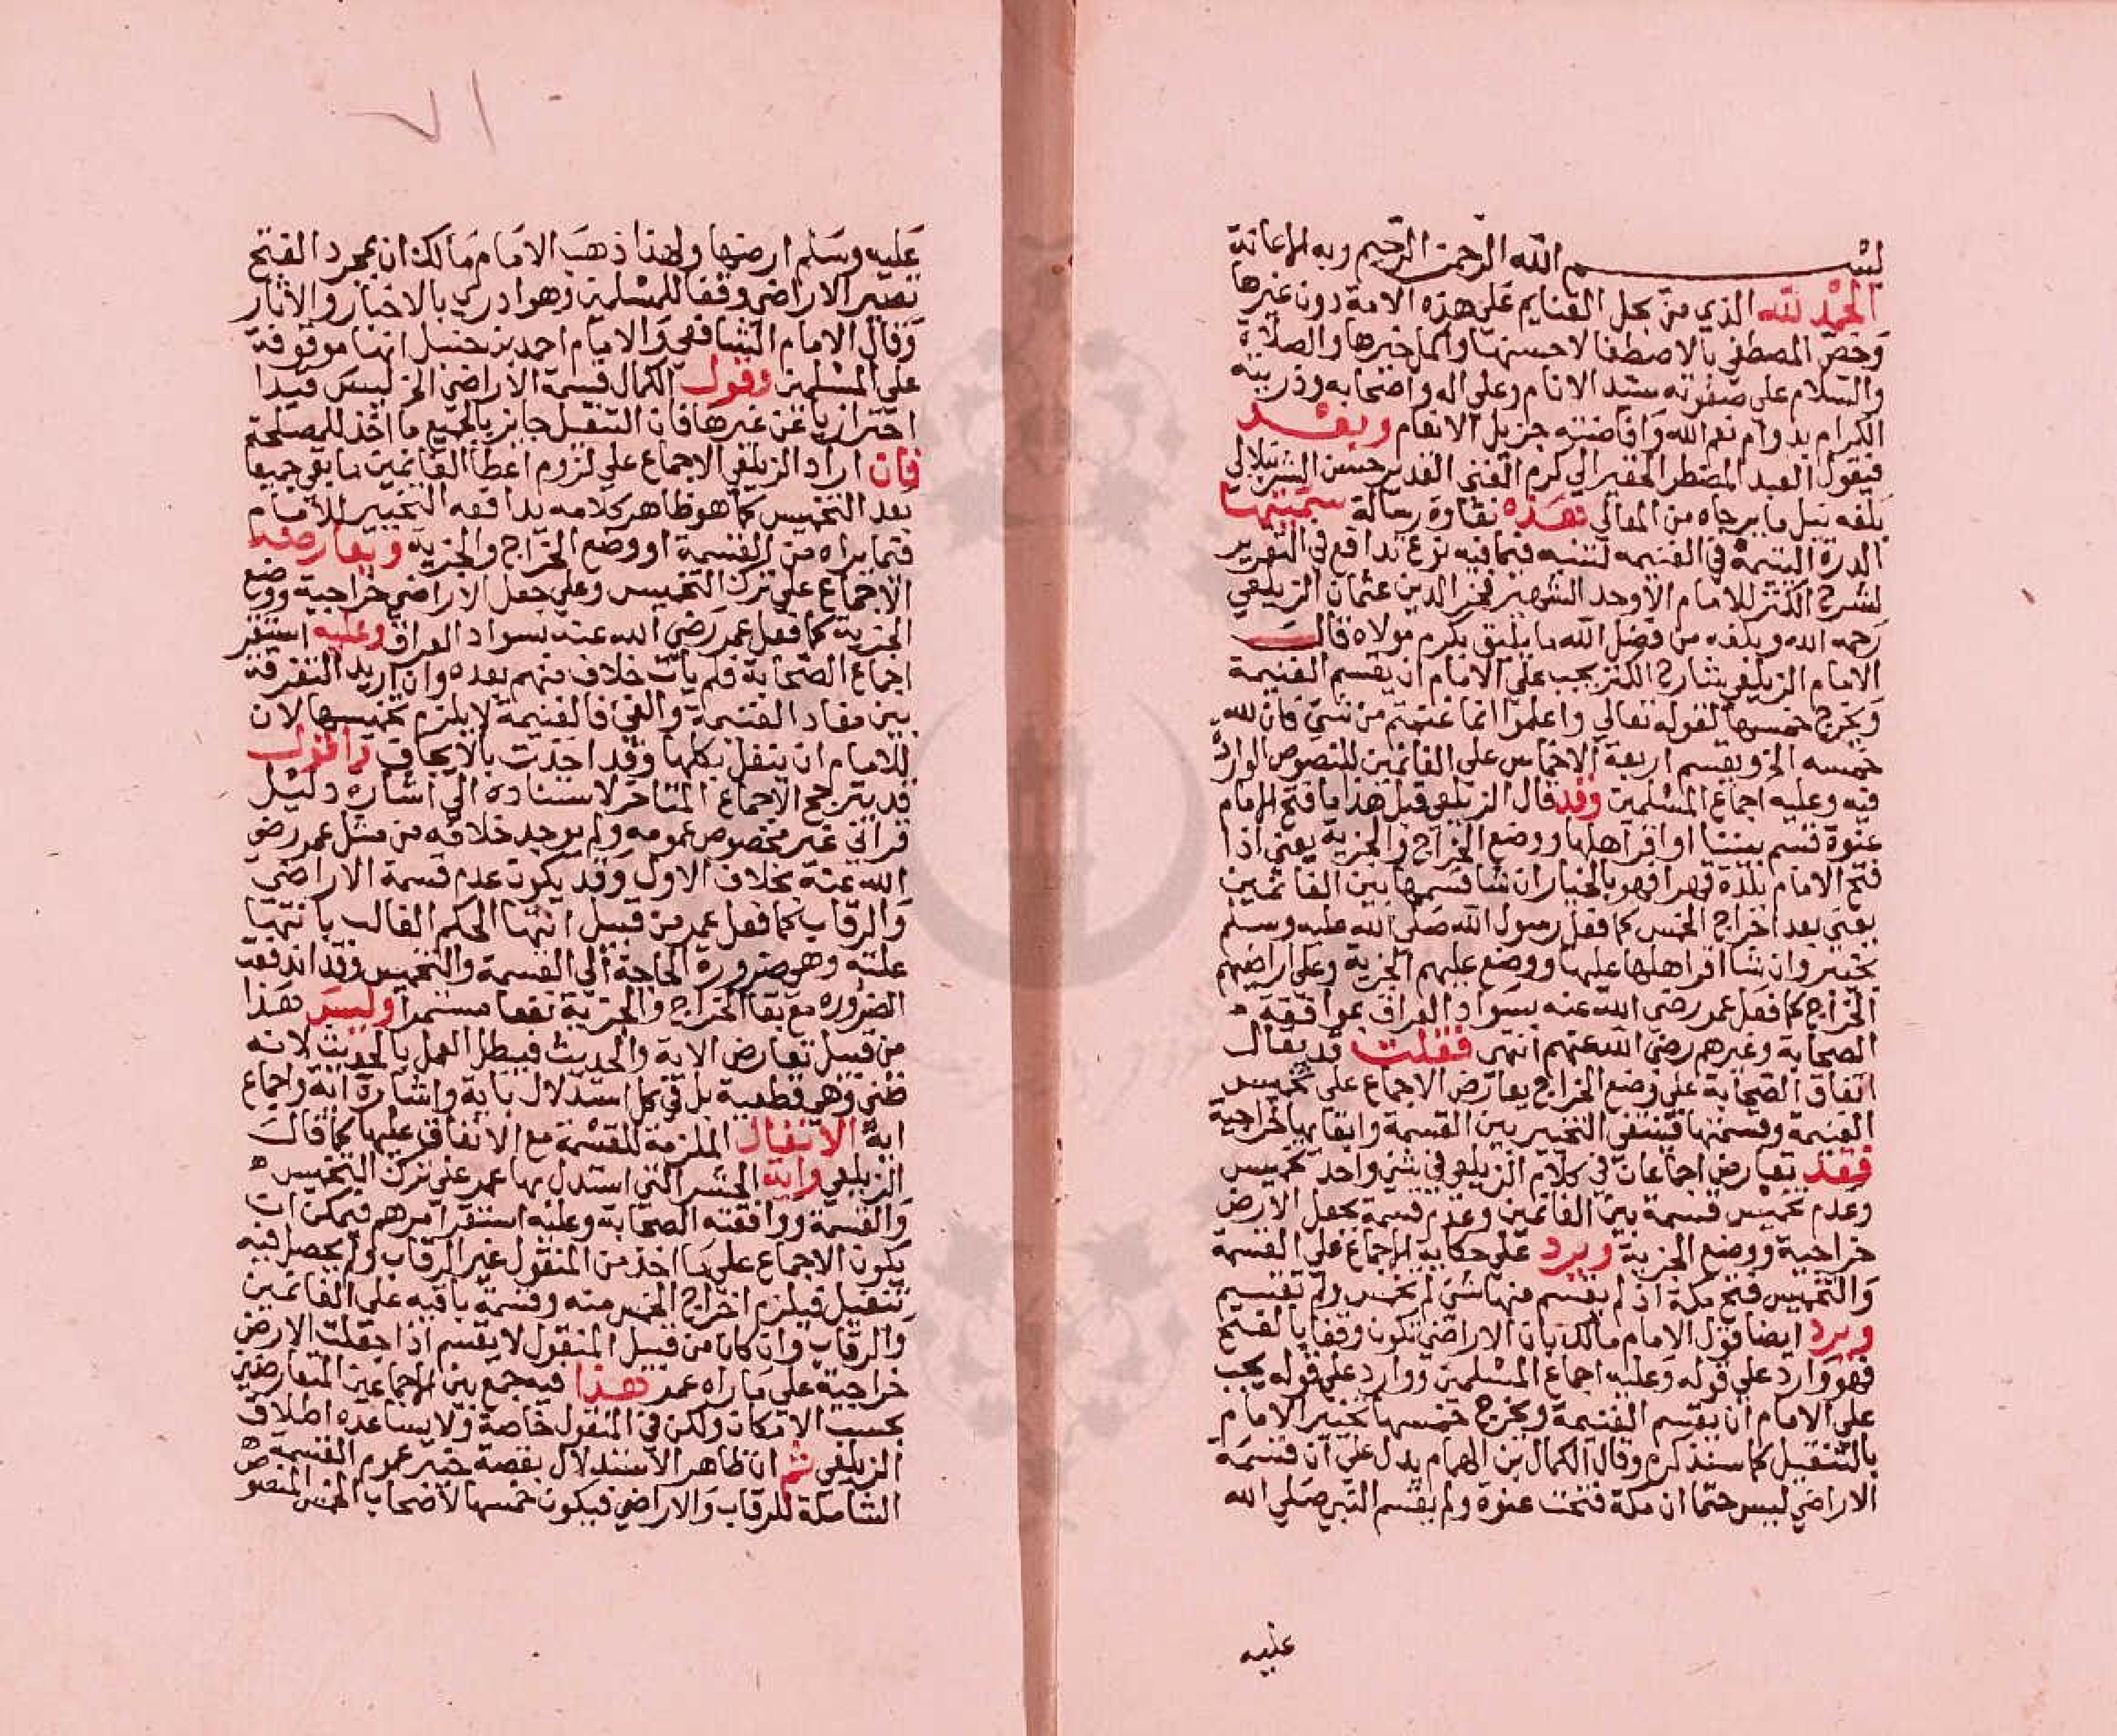 بسم الله الرحمن الرحيم وبه الاعانة
الحمد لله الذي من بحل الغنايم على هذه الامة دون غيرها
وخص المصطفى بالاصطفا لاحسنها واكمل خيرها والصلاة
والسلام على صفوته سيد الانام وعلى اله واصحابه وذريته
الكرام بدوام نعم الله وافاضته جزيل الانعام وبعد
فيقول العبد المضطر الحقير الى كرم الغني القدير حسن الشرنبلالي
بلغه نيل ما يرجاه من المعالي هذه نقاوة رسالة سميتها
الدرة اليتيمة في الغنيمه لتنبه فيما فيه نوع تدافع في التقرير
لشرح الكنز للامام الاوحد الشهير فخر الدين عثمان الزيلعي
رحمه الله وبلغه من فضل الله ما يليق بكرم مولاه قال
الامام الزيلعي شارح الكنز يجب على الامام ان يقسم الغنيمة
ويخرج خمسها لقوله تعالى واعلموا انما غنمتم من شي فان لله
خمسه الخ ويقسم اربعة الاخماس على الغانمين للنصوص الواردة
فيه وعليه اجماع المسلمين وقد قال الزيلعي قبل هذا ما فتح الامام
عنوة قسم بيننا او اقر اهلها ووضع الخراج والجزية يعني اذا
فتح الامام بلدة قهرا فهو بالخيار ان شا قسمها بين الغانمين
يعني بعد اخراج الخمس كما فعل رسول الله صلى الله عليه وسلم
بخيبر وان شا اقر اهلها عليها ووضع عليهم الجزية وعلى اراضهم
الخراج كما فعل عمر رضي الله عنه بسواد العراق بموافقة
الصحابة وغيرهم رضي الله عنهم انتهى فقلت قد يقال
اتفاق الصحابة على وضع الخراج يعارض الاجماع على تخميس
الغنيمة وقسمتها فينتفي التخيير بين القسمة وابقايها خراجية
فقد تعارض اجماعان في كلام الزيلعي في شي واحد تخميس
وعدم تخميس قسمة بين الغانمين وعدم قسمة بجعل الارض
خراجية ووضع الجزية ويرد على حكاية الاجماع على القسمة
والتخميس فتح مكة اذ لم يقسم منها شي لم يخمس ولم تقسيم
ويرد ايضا قول الامام مالك بان الاراضي تكون وقفا بالفتح
فهو وارد على قوله وعليه اجماع المسلمين ووارد على قوله يجب
على الامام ان يقسم الغنيمة ويخرج خمسها بخيير الامام
بالتنفيل كما سنذكره وقال الكمال بن الهمام يدل على ان قسمة
الاراضي ليس حتما ان مكة فتحت عنوة ولم يقسم النبي صلى الله
عليه
٧١
عليه وسلم ارضها ولهذا ذهب الامام مالك ان بمجرد الفتح
تصير الاراضي وقفا للمسلمين وهو ادرى بالاخبار والاثار
وقال الامام الشافعي والامام احمد بن حنبل انها موقوفة
على المسلمين وقول الكمال قسمة الاراضي الخ ليس قيدا
احترازيا عن غيرها فان التنفيل جايز بالجميع ما اخذ للمصلحة
فان اراد الزيلعي الاجماع على لزوم اعطا الغانمين ما بقي جميعا
بعد التخميس كما هو ظاهر كلامه يدافعه التخيير للامام
فيما يراه من القسمة او وضع الخراج والجزية ويعارضه
الاجماع على ترك التخميس وعلى جعل الاراضي خراجية ووضع
الجزية كما فعل عمر رضي الله عنه بسواد العراق وعليه استقر
اجماع الصحابة فلم يات خلاف منهم بعده وان اريد التفرقة
بين مفاد الغنيمة والفي فالغنيمة لا يلزم تخميسها لان
للامام ان ينفل بكلها وقد اخذت بالايجاف
قد يترجح الاجماع المتاخر لاستناده الى اشارة دليل
قراني غير مخصوص عمومه ولم يوجد خلافه من مثل عمر رضي
الله عنه بخلاف الاول وقد يكون عدم قسمة الاراضي
والرقاب كما فعل عمر من قبيل انتها الحكم الغالب بانتها
علته وهي ضرورة الحاجة الى القسمة والتخميس وقد اندفعت
الضروره مع بقا الخراج والجزية نفعا مستمرا وليس هذا
من قبيل تعارض الاية والحديث فيبطل العمل بالحديث لانه
ظني وهي قطعية بل في كل استدلال باية واشارة اية واجماع
اية الانفال الملزمة للقسمة مع الاتفاق عليها كما قال
الزيلعي واية الحشر التي استدل بها عمر على ترك التخميس
والقسمة ووافقته الصحابة وعليه استقر امرهم فيمكن ان
يكون الاجماع على ما اخذ من المنقول غير الرقاب ولم يحصل فيه
تنفيل فيلزم اخراج الخمس منه وقسمة باقيه على الغانمين
والرقاب وان كان من قبيل المنقول لا يقسم اذا جعلت الارض
خراجية على ما راه عمر هذا فيه جمع بين الاجماعين المتعارضين
بحسب الامكان ولكن في المنقول خاصة ولا يساعده اطلاق
الزيلعي ثم ان ظاهر الاستدلال بقصة خيبر عموم القسمة
الشاملة للرقاب والاراضي فيكون خمسها لاصحاب الخمس المنصوص